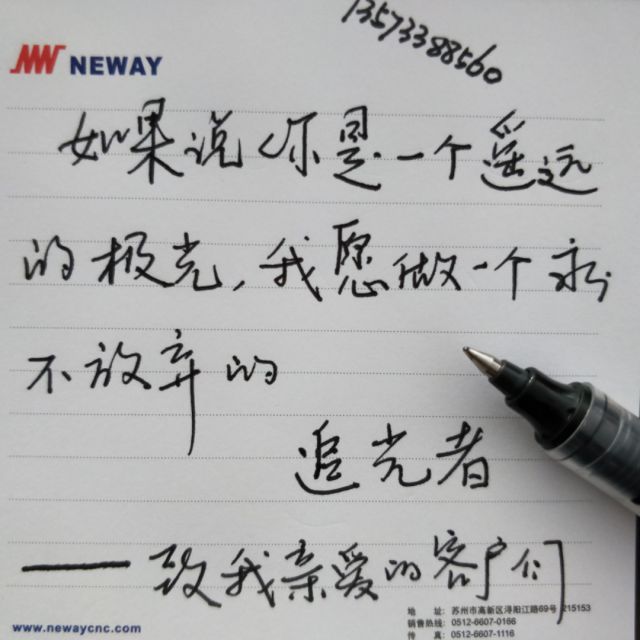 13573388560
NEWAY
如果说你是一个遥远
的极光，我愿做一个永
不放弃的
追光者
——致我亲爱的客户们
地 址：苏州市高新区浔阳江路69号 215153
销售热线：0512-6607-0166
www.newaycnc.com
传 真：0512-6607-1116